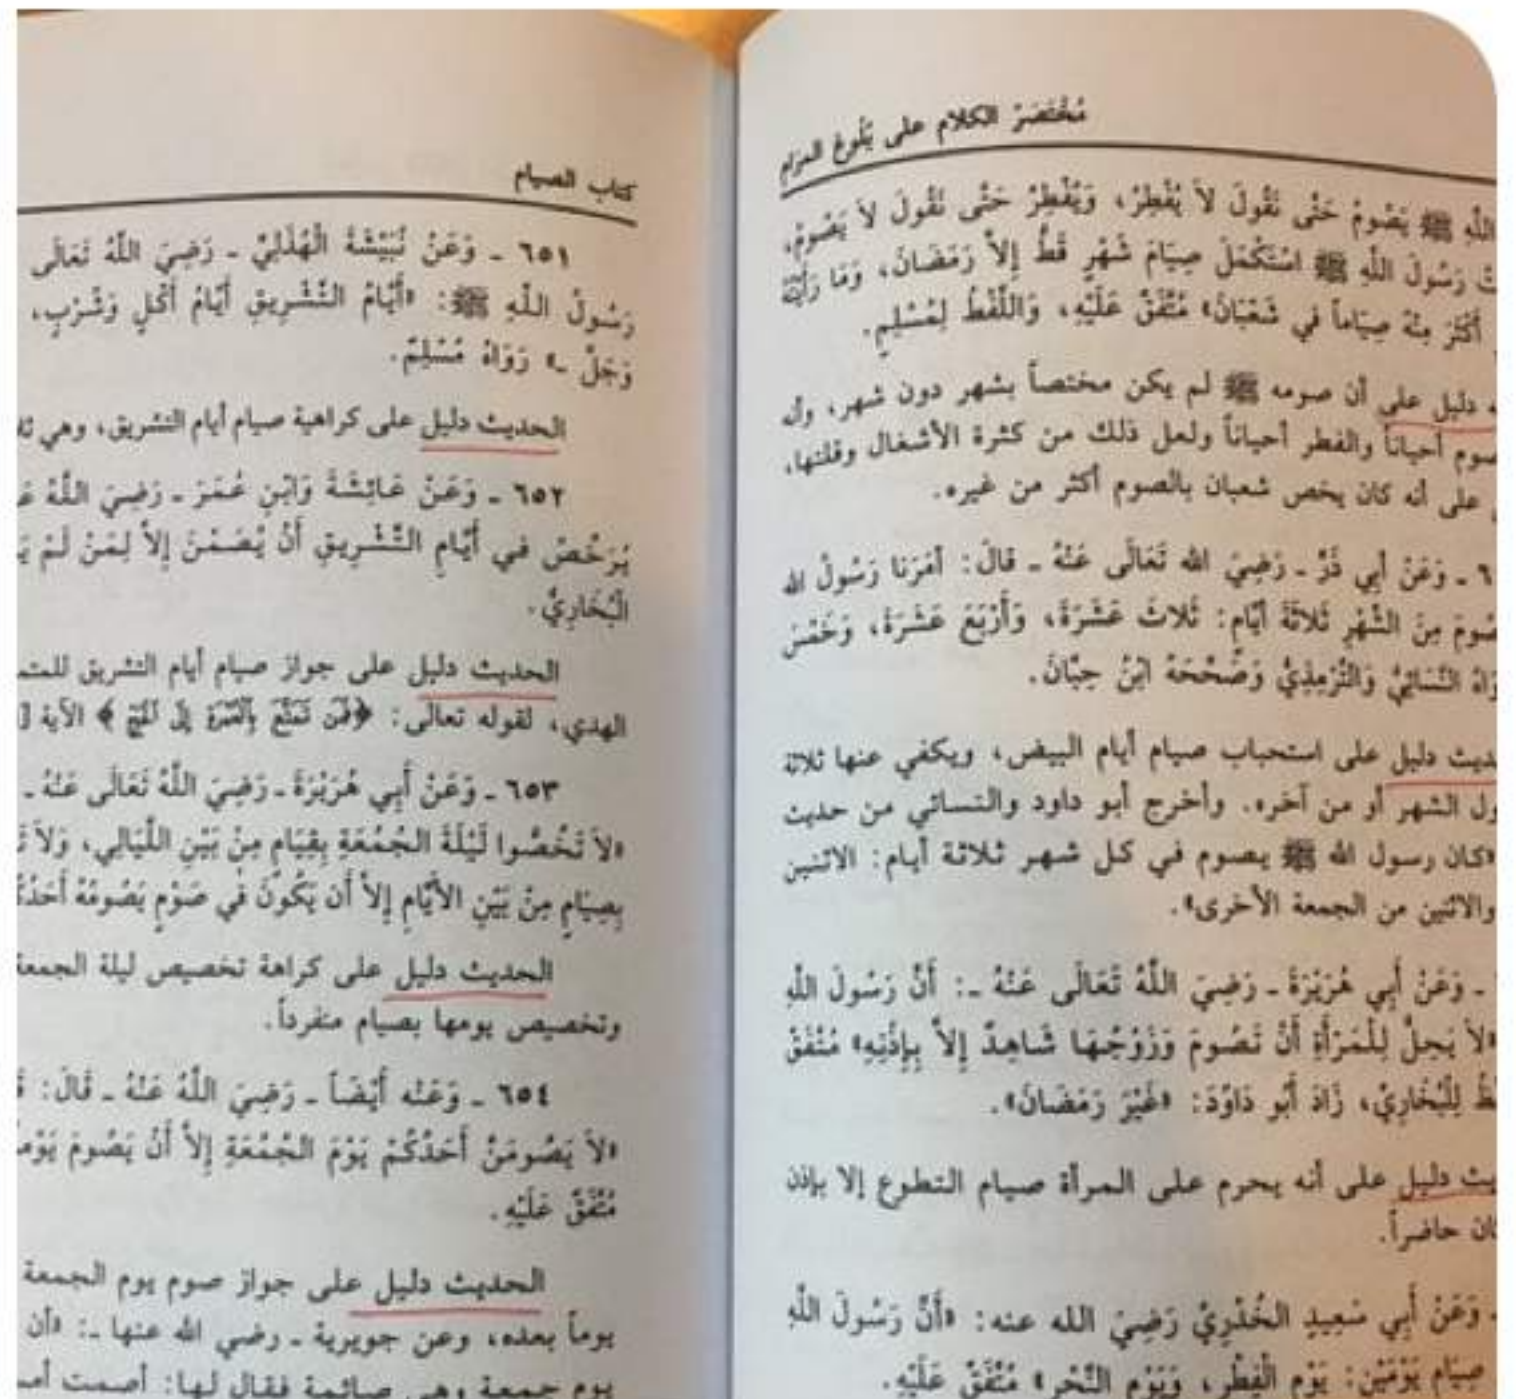 مُخْتَصَرُ الكلام على بُلُوغ المرَامِ
اللَّهِ ﷺ يَصُومُ حَتَّى نَقُولَ لاَ يُفْطِرُ، وَيُفْطِرُ حَتَّى نَقُولَ لاَ يَصُومُ،
رَسُولَ اللَّهِ ﷺ اسْتَكْمَلَ صِيَامَ شَهْرٍ قَطُّ إِلاَّ رَمَضَانَ، وَمَا رَأَيْتُهُ
أَكْثَرَ مِنْهُ صِيَاماً في شَعْبَانَ» مُتَّفَقٌ عَلَيْهِ، وَاللَّفْظُ لِمُسْلِمٍ.
دليل على أن صومه ﷺ لم يكن مختصاً بشهر دون شهر، وأنه
صوم أحياناً والفطر أحياناً ولعل ذلك من كثرة الأشغال وقلتها،
على أنه كان يخص شعبان بالصوم أكثر من غيره.
ـ وَعَنْ أَبِي ذَرٍّ ـ رَضِيَ الله تَعَالَى عَنْهُ ـ قالَ: أَمَرَنا رَسُولُ الله
صُومَ مِنَ الشَّهْرِ ثَلاثَةَ أيَّامٍ: ثَلاثَ عَشَرَةَ، وَأَرْبَعَ عَشَرَةَ، وَخَمْسَ
وَاهُ النَّسَائِيُّ وَالتِّرْمِذِيُّ وَصَحَّحَهُ ابْنُ حِبَّانَ.
ديث دليل على استحباب صيام أيام البيض، ويكفي عنها ثلاثة
ول الشهر أو من آخره. وأخرج أبو داود والنسائي من حديث
«كان رسول الله ﷺ يصوم في كل شهر ثلاثة أيام: الاثنين
والاثنين من الجمعة الأخرى».
ـ وَعَنْ أَبِي هُرَيْرَةَ ـ رَضِيَ اللَّهُ تَعَالَى عَنْهُ ـ: أَنَّ رَسُولَ اللَّهِ
«لاَ يَحِلُّ لِلْمَرْأَةِ أَنْ تَصُومَ وَزَوْجُهَا شَاهِدٌ إِلاَّ بِإِذْنِهِ» مُتَّفَقٌ
ظُ لِلْبُخَارِيِّ، زَادَ أَبُو دَاوُدَ: «غَيْرَ رَمَضَانَ».
يث دليل على أنه يحرم على المرأة صيام التطوع إلا بإذن
كان حاضراً.
ـ وَعَنْ أَبِي سَعِيدٍ الخُدْرِيِّ رَضِيَ الله عنه: «أَنَّ رَسُولَ اللَّهِ
صِيَامِ يَوْمَيْنِ: يَوْمِ الْفِطْرِ، وَيَوْمِ النَّحْرِ» مُتَّفَقٌ عَلَيْهِ.
كتاب الصيام
٦٥١ ـ وَعَنْ نُبَيْشَةَ الْهُذَلِيِّ ـ رَضِيَ اللَّهُ تَعَالَى
رَسُولُ اللَّهِ ﷺ: «أَيَّامُ التَّشْرِيقِ أَيَّامُ أَكْلٍ وَشُرْبٍ،
وَجَلَّ ـ» رَوَاهُ مُسْلِمٌ.
الحديث دليل على كراهية صيام أيام التشريق، وهي
٦٥٢ ـ وَعَنْ عَائِشَةَ وَابْنِ عُمَرَ ـ رَضِيَ اللَّهُ
يُرَخَّصْ في أَيَّامِ التَّشْرِيقِ أَنْ يُصَمْنَ إِلاَّ لِمَنْ لَمْ
الْبُخَارِيُّ.
الحديث دليل على جواز صيام أيام التشريق للمتم
الهدي، لقوله تعالى: ﴿فَمَن تَمَتَّعَ بِالْعُمْرَةِ إِلَى الْحَجِّ﴾ الآية
٦٥٣ ـ وَعَنْ أَبِي هُرَيْرَةَ ـ رَضِيَ اللَّهُ تَعَالَى عَنْهُ ـ
«لاَ تَخُصُّوا لَيْلَةَ الجُمُعَةِ بِقِيَامٍ مِنْ بَيْنِ اللَّيَالِي، وَلاَ
بِصِيَامٍ مِنْ بَيْنِ الأَيَّامِ إِلاَّ أَن يَكُونَ في صَوْمٍ يَصُومُهُ أَحَدُكُ
الحديث دليل على كراهة تخصيص ليلة الجمعة
وتخصيص يومها بصيام منفرداً.
٦٥٤ ـ وَعَنْه أَيْضاً ـ رَضِيَ اللَّهُ عَنْهُ ـ قَالَ:
«لاَ يَصُومَنَّ أَحَدُكُمْ يَوْمَ الجُمُعَةِ إِلاَّ أَنْ يَصُومَ يَوْماً
مُتَّفَقٌ عَلَيْهِ.
الحديث دليل على جواز صوم يوم الجمعة
يوماً بعده، وعن جويرية ـ رضي الله عنها ـ: «أن
يوم جمعة وهي صائمة فقال لها: أصمت أمس